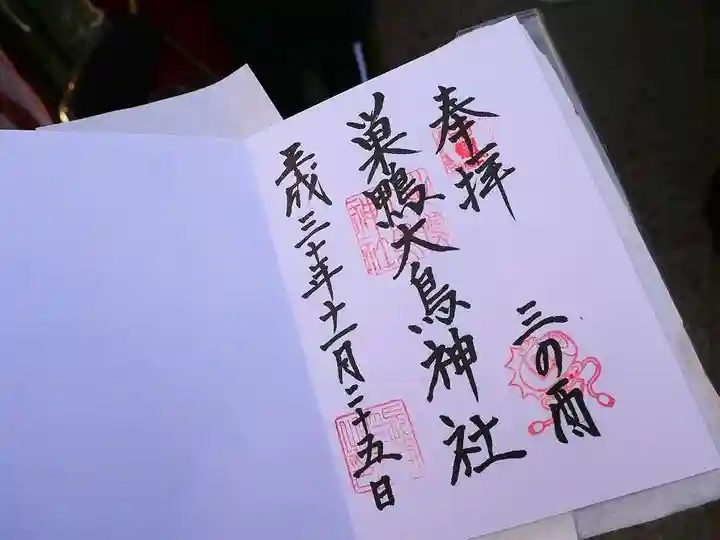 奉拝
三の酉
巣鴨大鳥神社
平成三十年十一月二十五日